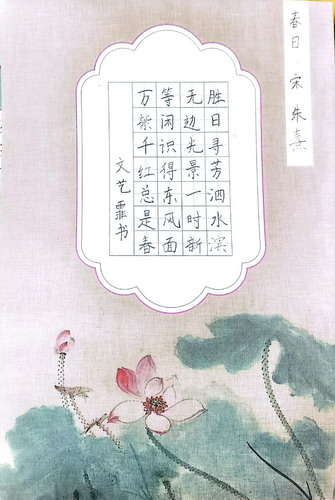 春日 宋 朱熹
胜日寻芳泗水滨
无边光景一时新
等闲识得东风面
万紫千红总是春
文艺霏书